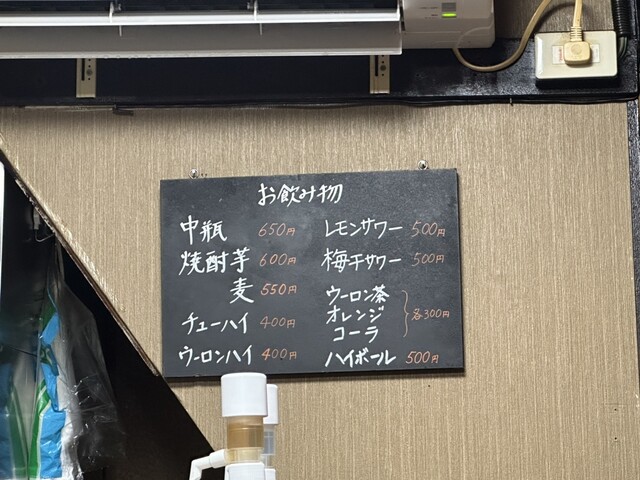 お飲み物
中瓶 650円
焼酎芋 600円
麦 550円
チューハイ 400円
ウーロンハイ 400円
レモンサワー 500円
梅干サワー 500円
ウーロン茶
オレンジ
コーラ
各300円
ハイボール 500円